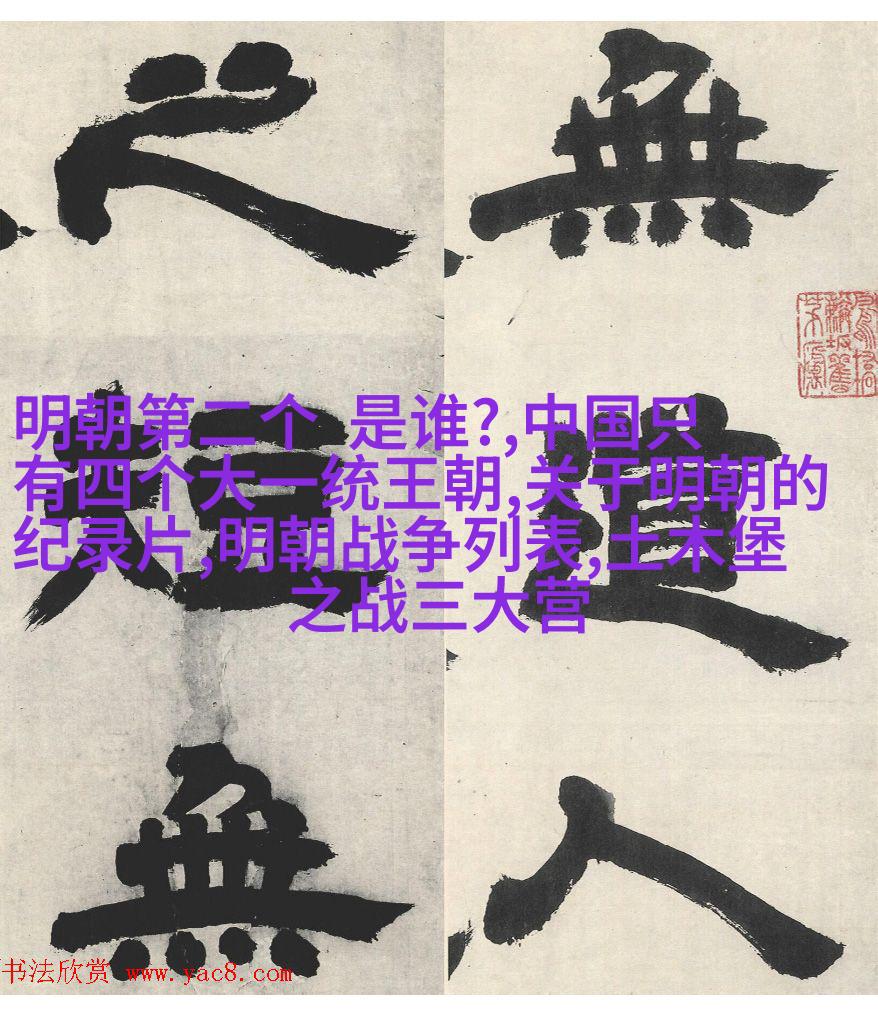 無道人
之短無
明朝第二个  是谁?,中国只
有四个大一统王朝,关于明朝的
纪录片,明朝战争列表,土木堡
之战三大营
书法欣赏 www.yac8.com